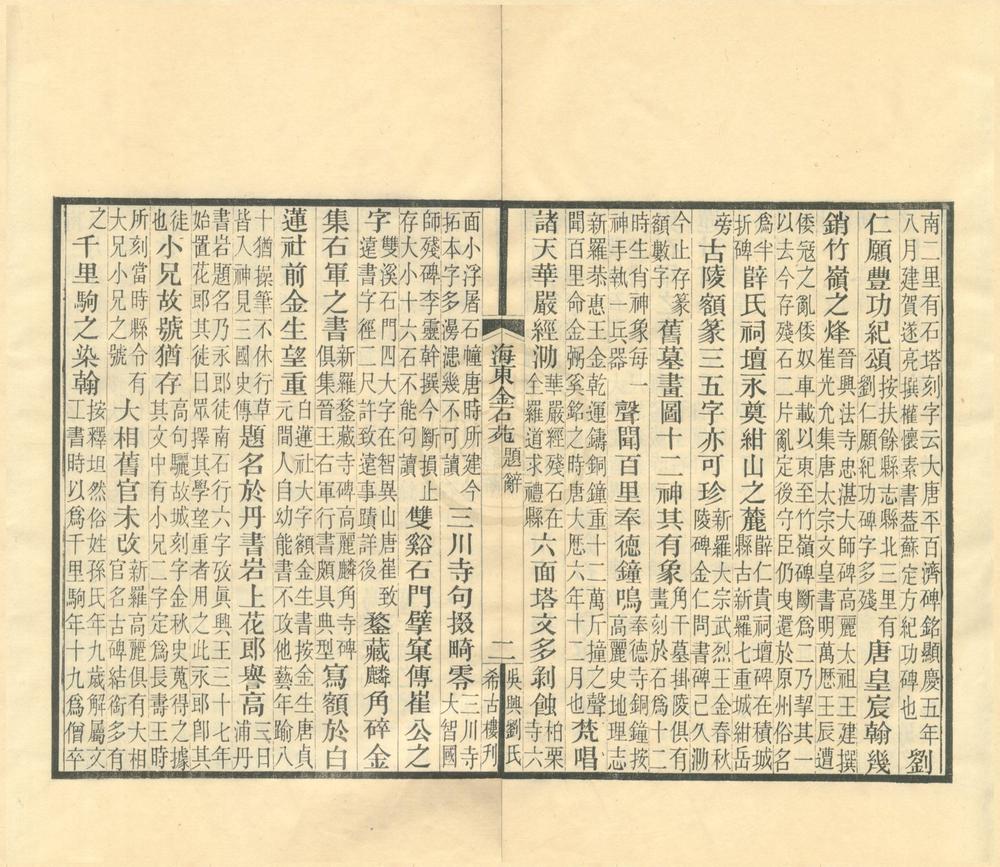 南二里有石塔刻字云大唐平百濟碑銘顯慶五年
八月建賀遂亮撰權懷素書葢蘇定方紀功碑也
劉
仁願豐功紀頌
按扶餘縣志縣北三里有
劉仁願紀功碑字多殘
唐皇宸翰幾
銷竹嶺之烽
晉興法寺忠湛大師碑高麗太祖王建撰
崔光允集唐太宗文皇書明萬歷壬辰遭
倭冦之亂倭奴車載以東至竹嶺碑斷爲二乃挈其一
以去今存殘石二片亂定後守臣仍曳還於原州俗名
爲半
折碑
薛氏祠壇永奠紺山之麓
薛仁貴祠壇碑在積城
縣古新羅七重城紺岳
旁
古陵額篆三五字亦可珍
新羅大宗武烈王金春秋
陵碑金仁問書碑已久泐
今止存篆
額數字
舊墓畫圖十二神其有象
角干墓掛陵俱有
畫刻於石爲十二
時生肖神象每一
神手執一兵器
聲聞百里奉德鐘鳴
奉德寺銅鐘按
高麗史地理志
新羅恭惠王金乾運鑄銅鐘重十二萬斤撞之聲
聞百里命金弼奚銘之時唐大厯六年十二月也
梵唱
諸天華嚴經泐
華嚴經殘石在
全羅道求禮縣
六面塔文多剥蝕
柏栗
寺六
海東金石苑
題辭
二
吳興劉氏
希古樓刊
面小浮屠石幢唐時所建今
拓本字多漫漶幾不可讀
三川寺句掇畸零
三川寺
大智國
師殘碑李靈幹撰今斷損止
存大小十六石不能句讀
雙谿石門擘窠傳崔公之
字
雙溪石門四大字在智異山唐崔致
遠書字徑二尺許致遠事蹟詳後
鍪藏麟角碎金
集右軍之書
新羅鍪藏寺碑高麗麟角寺碑
俱集晉王右軍行書頗具典型
寫額於白
蓮社前金生望重
白蓮社大字額金生書按金生唐貞
元間人自幼能書不攻他藝年踰八
十猶操筆不休行草
皆入神見三國史傳
題名於丹書岩上花郎譽高
三日
浦丹
書岩題名乃永郎徒南石行六字攷眞興王三十七年
始置花郎其徒曰眾擇其學望重者用之此永郎卽其
徒
也
小兄故號猶存
高句驪故城刻字金秋史蒐得之據
其文中有小兄二字定爲長壽王時
所刻當時縣令有
大兄小兄之號
大相舊官未改
新羅高麗俱有大相
官名古碑結銜多有
之
千里駒之染翰
按釋坦然俗姓孫氏年九歲解屬文
工書時以爲千里駒年十九爲僧卒